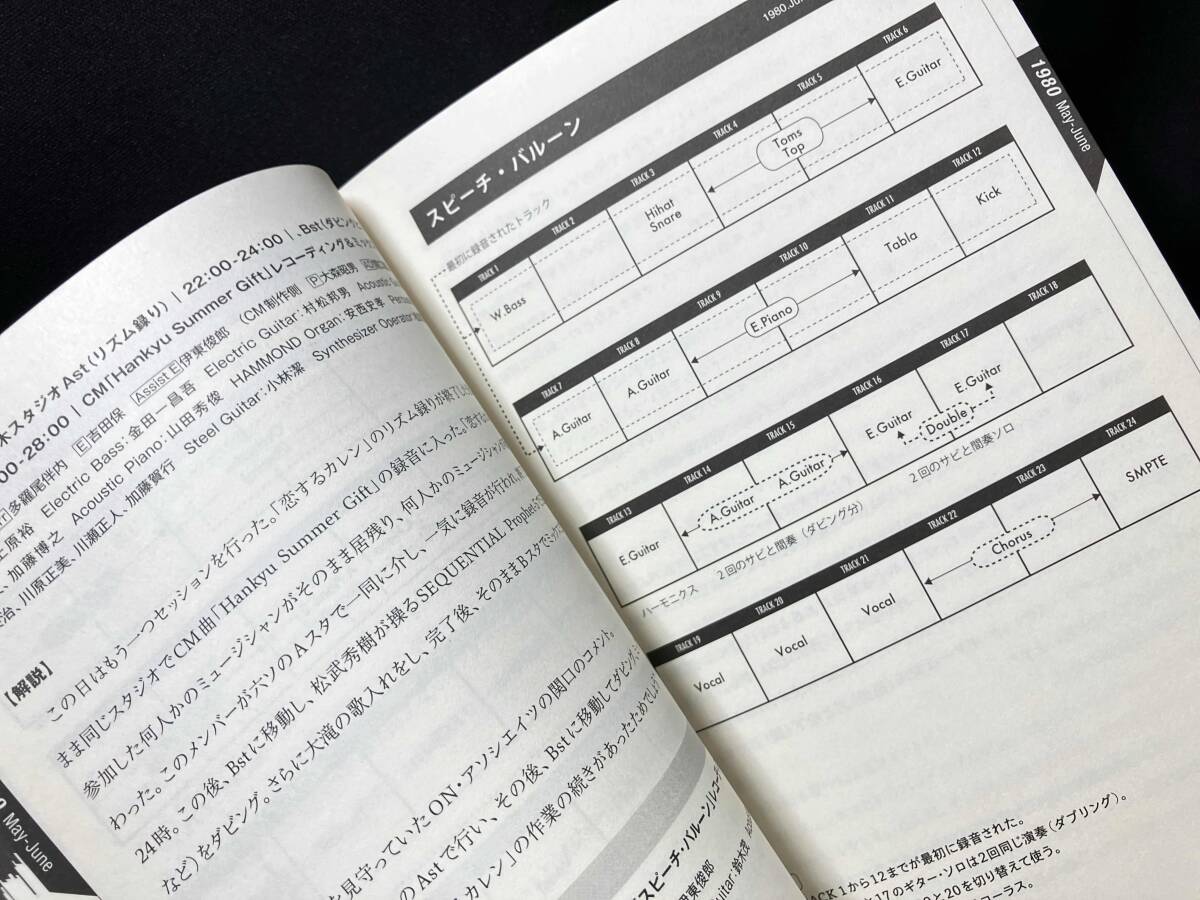 木スタジオAst(リズム録り) | 22:00-24:00 | Bst(ダビング
00-28:00 | CM「Hankyu Summer Gift」レコーディング&ミック
多羅尾伴内 E吉田保 Assist E伊東俊郎 (CM制作側 P大森昭男
上原裕 Electric Bass:金田一昌吾 Electric Guitar:村松邦男 Acoustic
、加藤博之 Acoustic Piano:山田秀俊 HAMMOND Organ:安西史孝
治、川原正美、川瀬正人、加藤賀行 Steel Guitar:小林潔 Synthesizer Operator
【解説】
この日はもう一つセッションを行った。「恋するカレン」のリズム録りが終了し
まま同じスタジオでCM曲「Hankyu Summer Gift」の録音に入った。「恋する
参加した何人かのミュージシャンがそのまま居残り、何人かのミュージシャンが
わった。このメンバーが六ソのAスタで一同に介し、一気に録音が行われ、
24時。この後、Bstに移動し、松武秀樹が操るSEQUENTIAL Prophet-5
など)をダビング。さらに大滝の歌入れをし、完了後、そのままBスタでミック
を見守っていたON・アソシエイツの関口のコメント。
のAstで行い、その後、Bstに移動してダビング、
カレン」の作業の続きがあったためでしょう
スピーチ・バルーン」レコー
伊東俊郎
Guitar:鈴木茂
May-June
1980.Jun
1980 May-June
スピーチ・バルーン
最初に録音されたトラック
TRACK 1
TRACK 2
TRACK 3
TRACK 4
TRACK 5
TRACK 6
W.Bass
Hihat
Snare
Toms
Top
E.Guitar
TRACK 7
TRACK 8
TRACK 9
TRACK 10
TRACK 11
TRACK 12
A.Guitar
A.Guitar
E.Piano
Tabla
Kick
TRACK 13
TRACK 14
TRACK 15
TRACK 16
TRACK 17
TRACK 18
E.Guitar
A.Guitar
A.Guitar
E.Guitar
Double
E.Guitar
ハーモニクス
2回のサビと間奏(ダビング分)
2回のサビと間奏ソロ
TRACK 19
TRACK 20
TRACK 21
TRACK 22
TRACK 23
TRACK 24
Vocal
Vocal
Vocal
Chorus
SMPTE
ACK 1から12までが最初に録音された。
と17のギター・ソロは2回同じ演奏(ダブリング)。
と20を切り替えて使う。
コーラス。